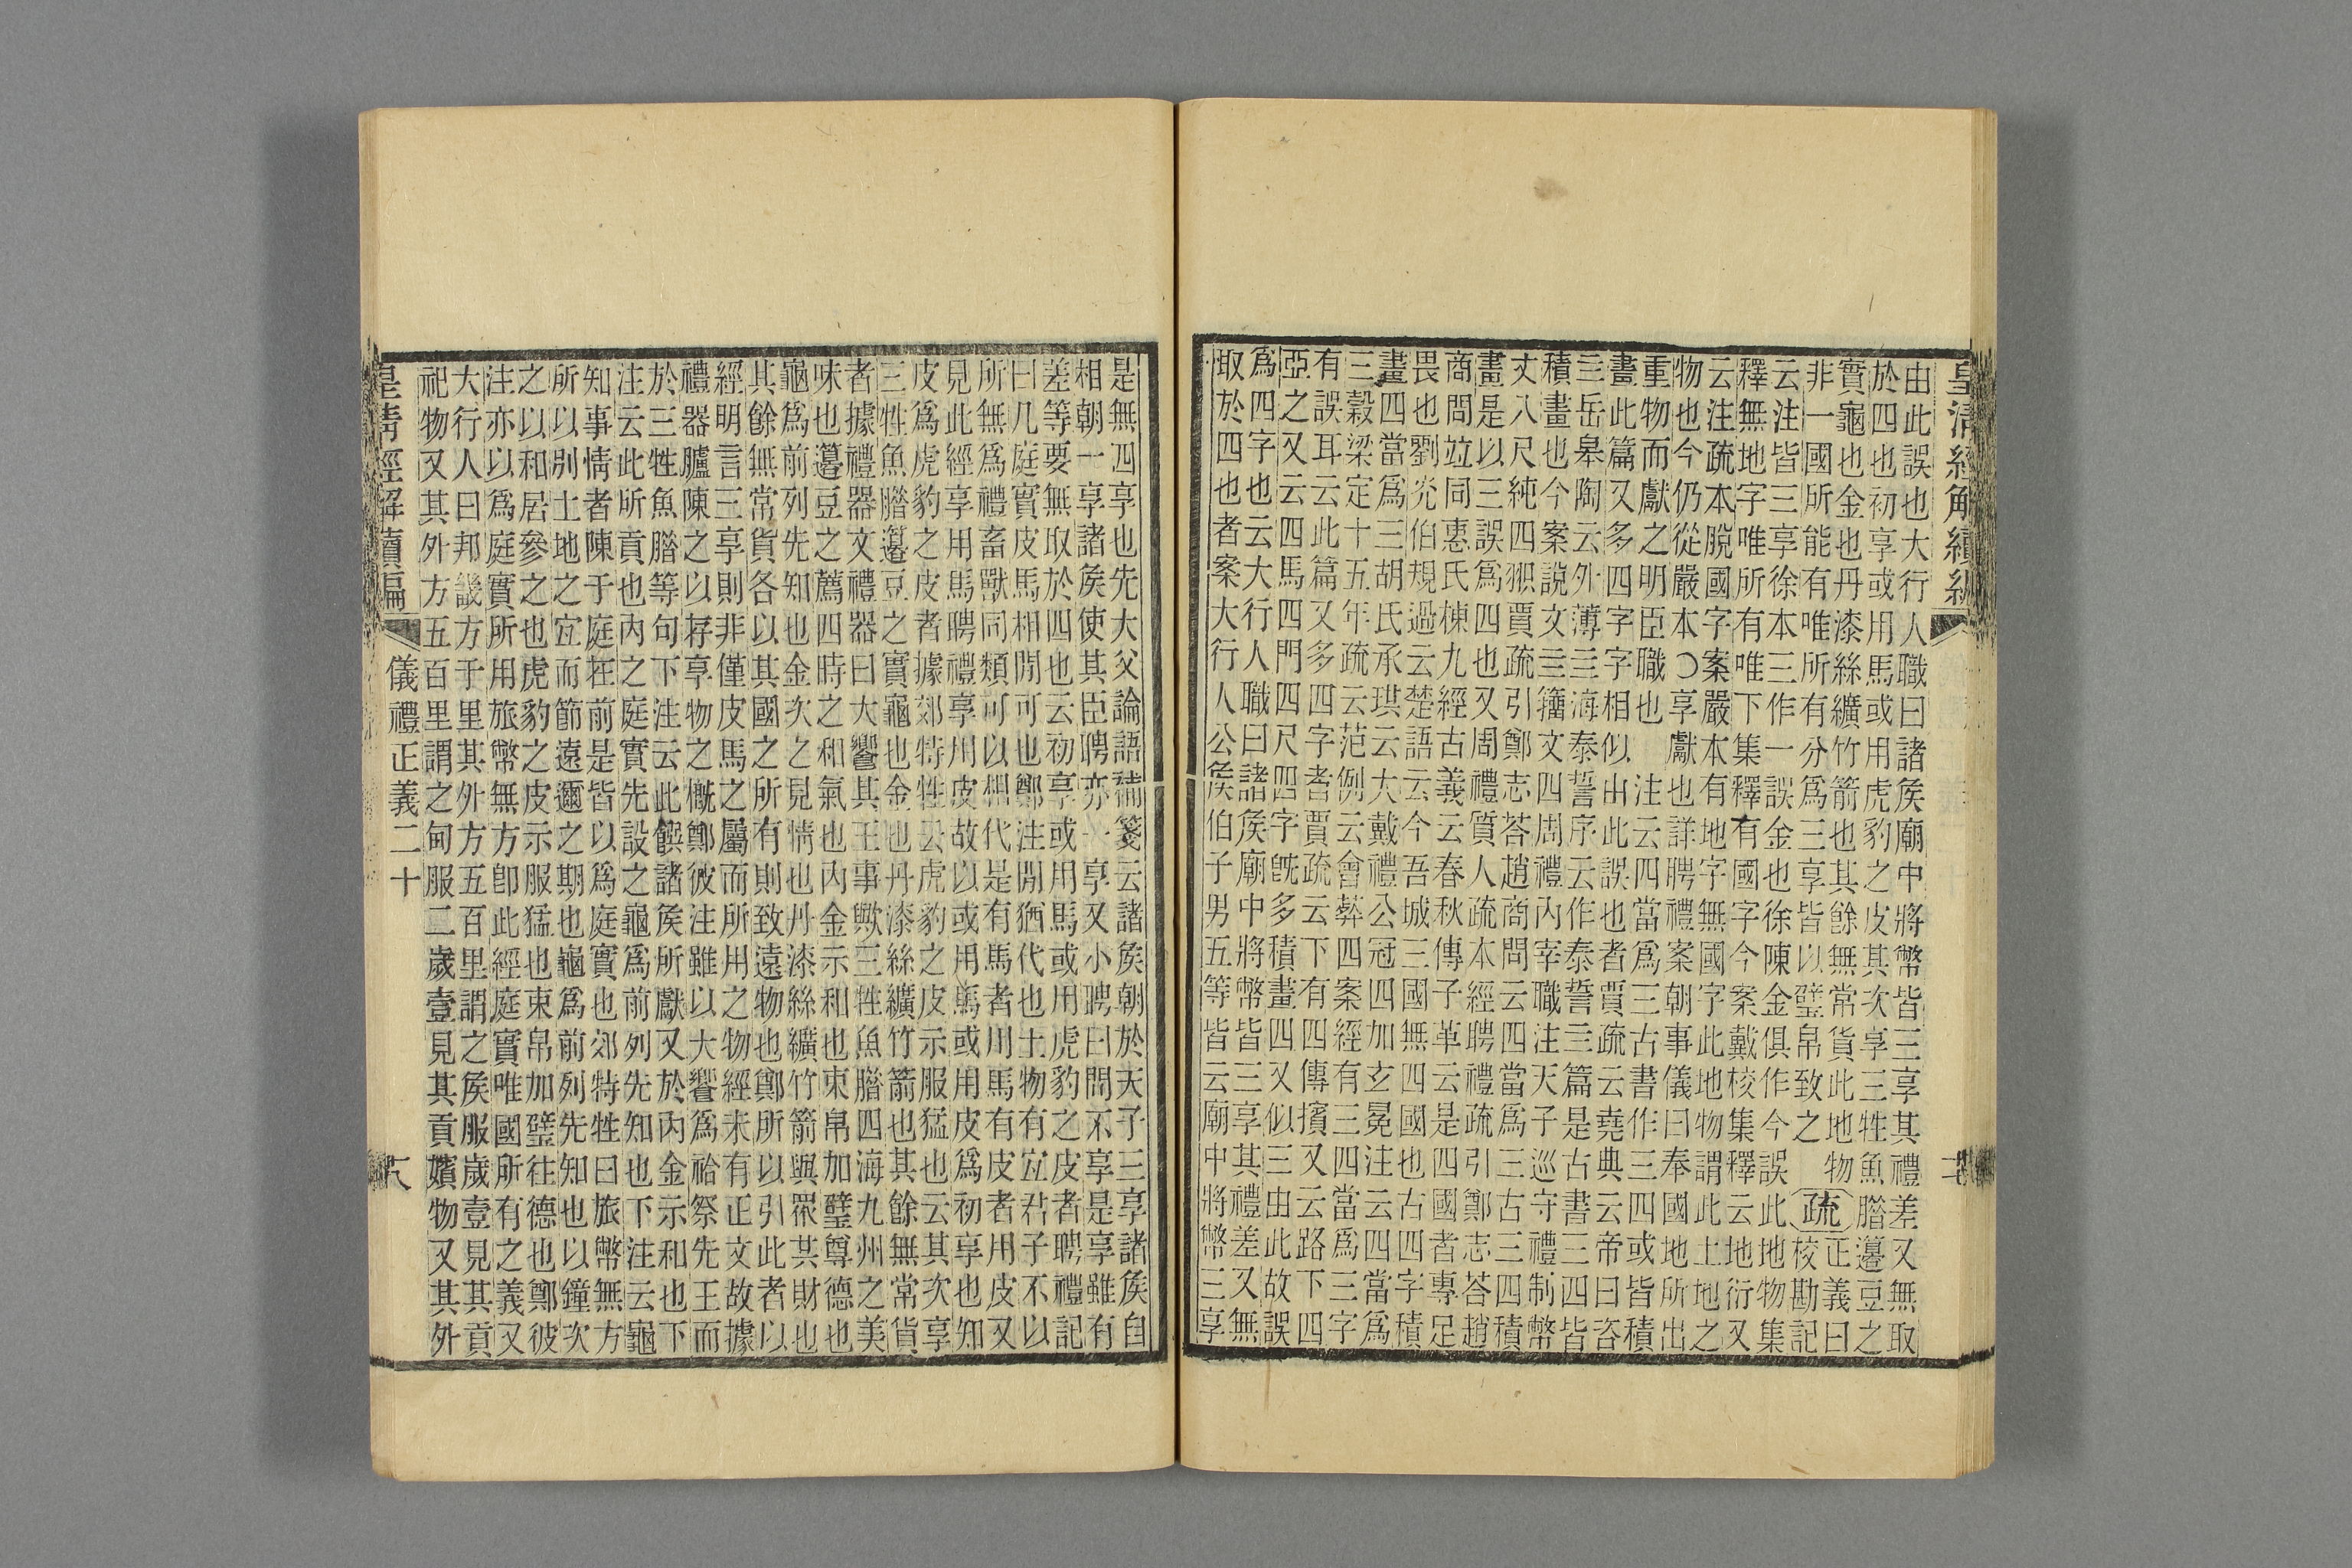 皇清經解續編
由此誤也大行人職曰諸矦廟中將幣皆三享其禮差又無取
於四也初享或用馬或用虎豹之皮其次享三牲魚腊籩豆之
實龜也金也丹漆絲纊竹箭也其餘無常貨此地物
非一國所能有唯所有分爲三享皆以璧帛致之
疏
正義曰
校勘記
云注皆三享徐本三作一誤金也徐陳金俱作今誤此地物集
釋無地字唯所有唯下集釋有國字今案戴校集釋云地衍又
云注疏本脫國字案嚴本有地字無國字此地物謂此土地之
物也今仍從嚴本〇享獻也詳聘禮案朝事儀曰奉國地所出
重物而獻之明臣職也 注云四當爲三古書作三四或皆積
畫此篇又多四字字相似出此誤也者賈疏云堯典云帝曰咨
亖岳皋陶云外薄亖海泰誓序云作泰誓亖篇是古書三四皆
積畫也今案說文亖籀文四周禮內宰職注天子巡守禮制幣
丈八尺純四賈疏引鄭志荅趙商問云四當爲三古三四積
畫是以三誤爲四也又周禮質人疏本經聘禮疏引鄭志荅趙
商問竝同惠氏棟九經古義云春秋傳子革云是四國者專足
畏也劉炫伯規過云楚語云今吾城三國無四國也古四字積
畫四當爲三胡氏承珙云大戴禮公冠四加玄冕注云四當爲
三穀梁定十五年疏云范例云會葬四案經有三四當爲三字
有誤耳云此篇又多四字者賈疏云下有四傳擯又云路下四
亞之又云四馬四門四尺四字旣多積畫四又似三由此故誤
爲四字也云大行人職曰諸矦廟中將幣皆三享其禮差又無
取於四也者案大行人公矦伯子男五等皆云廟中將幣三享
是無四享也先大父論語補箋云諸矦朝於天子三享諸矦自
相朝一享諸矦使其臣聘亦一享又小聘曰問不享是享雖有
差等要無取於四也云初享或用馬或用虎豹之皮者聘禮記
曰几庭實皮馬相閒可也鄭注閒猶代也土物有宜君子不以
所無爲禮畜獸同類可以相代是有馬者用馬有皮者用皮又
見此經享用馬聘禮享用皮故以或用馬或用皮爲初享也知
皮爲虎豹之皮者據郊特牲云虎豹之皮示服猛也云其次享
三牲魚腊籩豆之實龜也金也丹漆絲纊竹箭也其餘無常貨
者據禮器文禮器曰大饗其王事歟三牲魚腊四海九州之美
味也籩豆之薦四時之和氣也內金示和也束帛加璧尊德也
龜爲前列先知也金次之見情也丹漆絲纊竹箭與眾其財也
其餘無常貨各以其國之所有則致遠物也鄭所以引此者以
經明言三享則非僅皮馬之屬而所用之物經未有正文故據
禮器臚陳之以存享物之槪鄭彼注雖以大饗爲祫祭先王而
於三牲魚腊等句下注云此饌諸矦所獻又於內金示和也下
注云此所貢也內之庭實先設之龜爲前列先知也下注云龜
知事情者陳于庭在前是皆以爲庭實也郊特牲曰旅幣無方
所以別土地之宜而節遠邇之期也龜爲前列先知也以鐘次
之以和居參之也虎豹之皮示服猛也束帛加璧往德也鄭彼
注亦以爲庭實所用旅幣無方卽此經庭實唯國所有之義又
大行人曰邦畿方千里其外方五百里謂之矦服歲壹見其貢
祀物又其外方五百里謂之甸服二歲壹見其貢嬪物又其外
皇清經解續編 儀禮正義二十